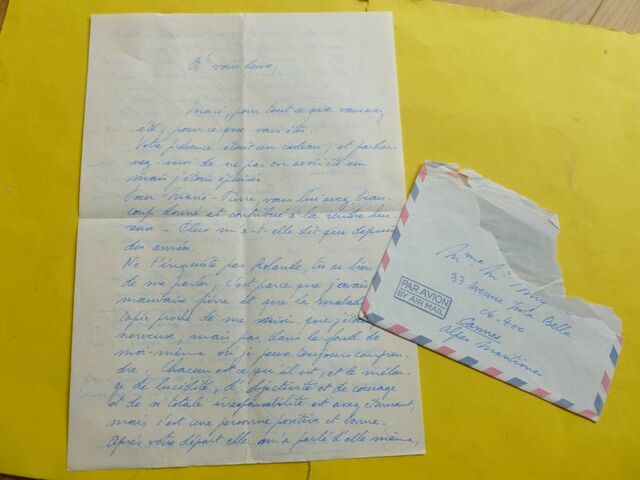 A vous deux,
Merci, pour tout ce que vous avez
été, pour ce que vous êtes.
Votre présence était un cadeau, et pardon-
nez-moi de ne pas en avoir été un
mais j'étais épuisée
Pour Marie-Pierre, vous lui avez beau-
coup donné et contribué à la rendre heu-
reuse - Plus m'a-t-elle dit que depuis
des années.
Ne t'enquiète pas Rolande, tu as bien
de me parler, c'est parce que j'avais
mauvaise fièvre et que la maladie
copie proche de me que j'étais
nerveuse, mais pas dans le fond de
moi-même où je peux toujours compren-
dre. Chacun est ce qu'il est, et le mélan-
ge de lucidité, d'objectivité et de courage
et de si totale irresponsabilité est assez étonnant,
mais c'est une personne positive et bonne.
Après votre départ elle m'a parlé d'elle même,
PAR AVION
BY AIR MAIL
Mme M.
33 Avenue Isola Bella
06400
Cannes
Alpes Maritimes